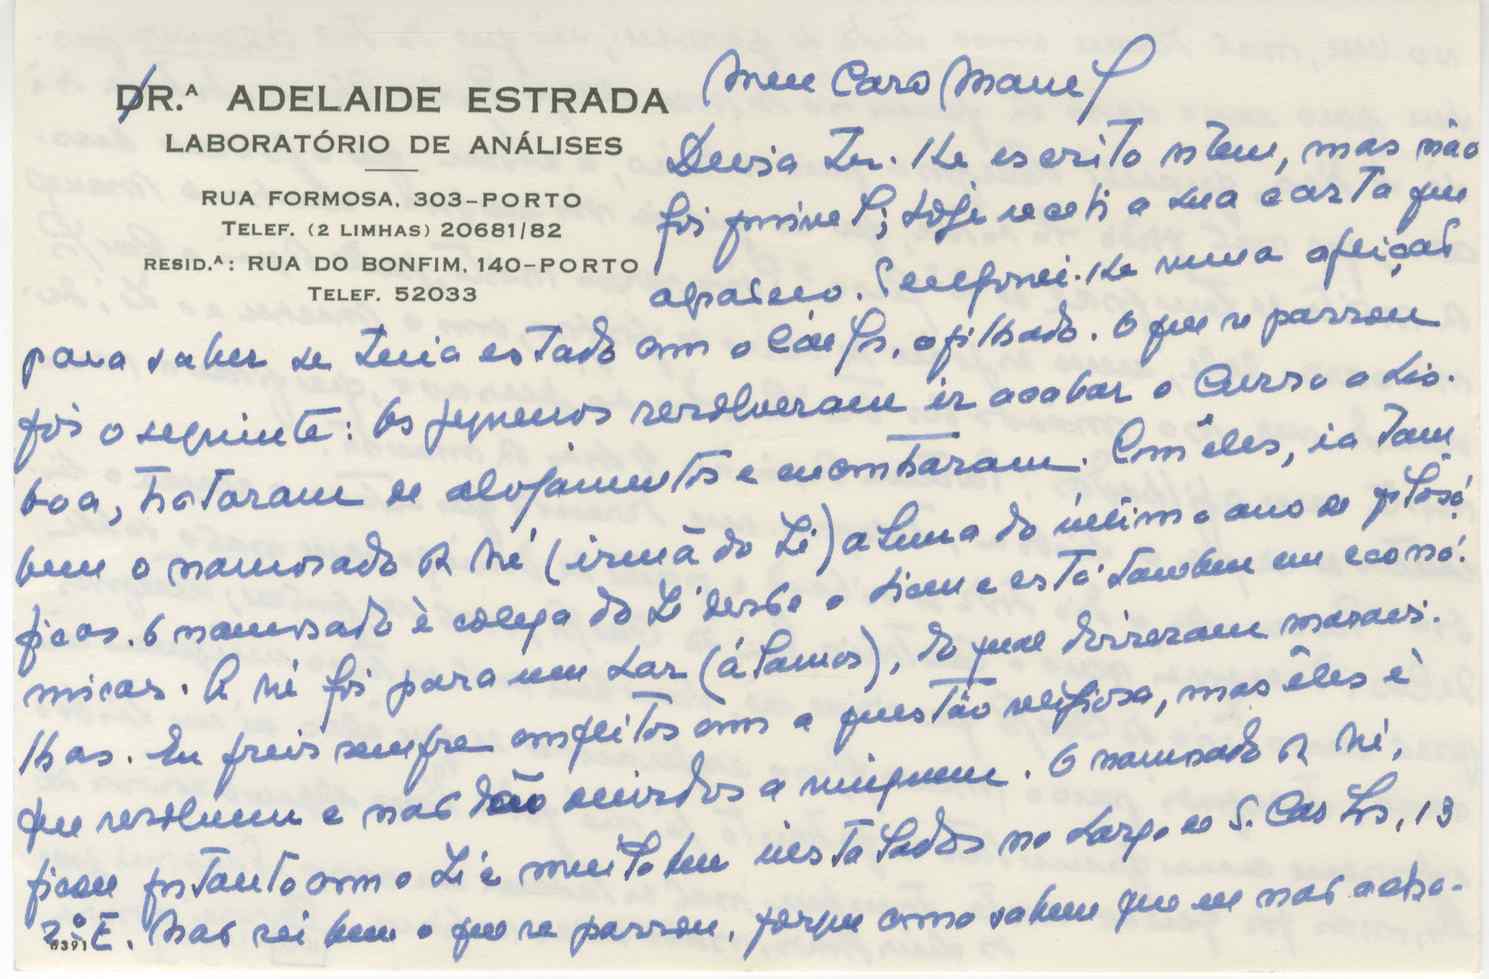 DR.ª ADELAIDE ESTRADA
LABORATÓRIO DE ANÁLISES
RUA FORMOSA, 303-PORTO
TELEF. (2 LIMHAS) 20681/82
RESID.ª: RUA DO BONFIM, 140-PORTO
TELEF. 52033
Meu Caro Manuel
Devia ter-lhe escrito ontem, mas não
foi possivel; hoje recebi a sua carta que
agradeço. Telefonei-lhe numa aflição
para saber se teria estado com o Carlos, afilhado. O que se passou
foi o seguinte: Os pequenos resolveram ir acabar o Curso a Lis-
boa, trataram de alojamentos e encontraram. Com êles, ia tam-
bem o namorado da Né (irmã do Zé) aluna do último ano de filosó-
ficas. O namorado è colega do Zé desde o liceu e está tambem em econó-
micas. A Né foi para um Lar (álamos), do qual disseram maravi-
lhas. Eu freis sempre com a questão religiosa, mas êles è
que resolvem e não dão ouvidos a ninguem. O namorado da Né,
ficou portanto com o Zé e muito bem instalados no Largo de S. Carlos, 13
2º E. Não sei bem o que se passou, porque como sabem que eu não acho-
0391